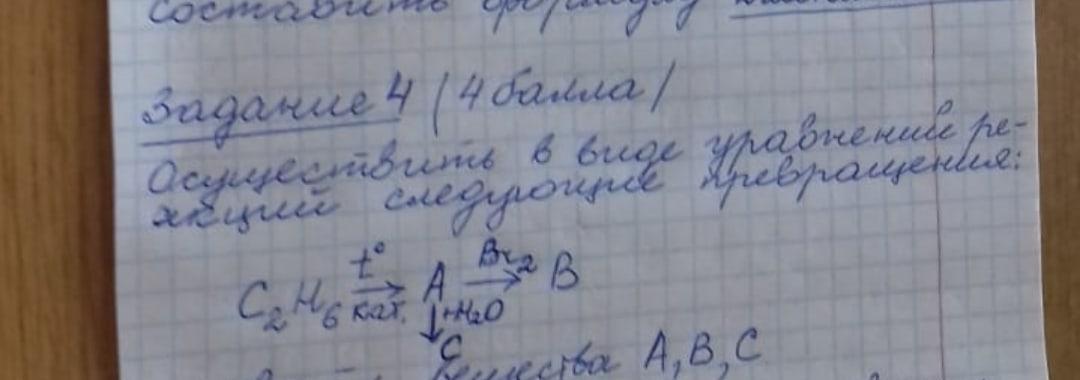 составить формулу
Задание 4 (4 балла)
Осуществить в виде уравнений ре-
акций следующие превращения:
C₂H₆ t° кат. → A Br₂ → B
↓ +H₂O
C
вещества A, B, C